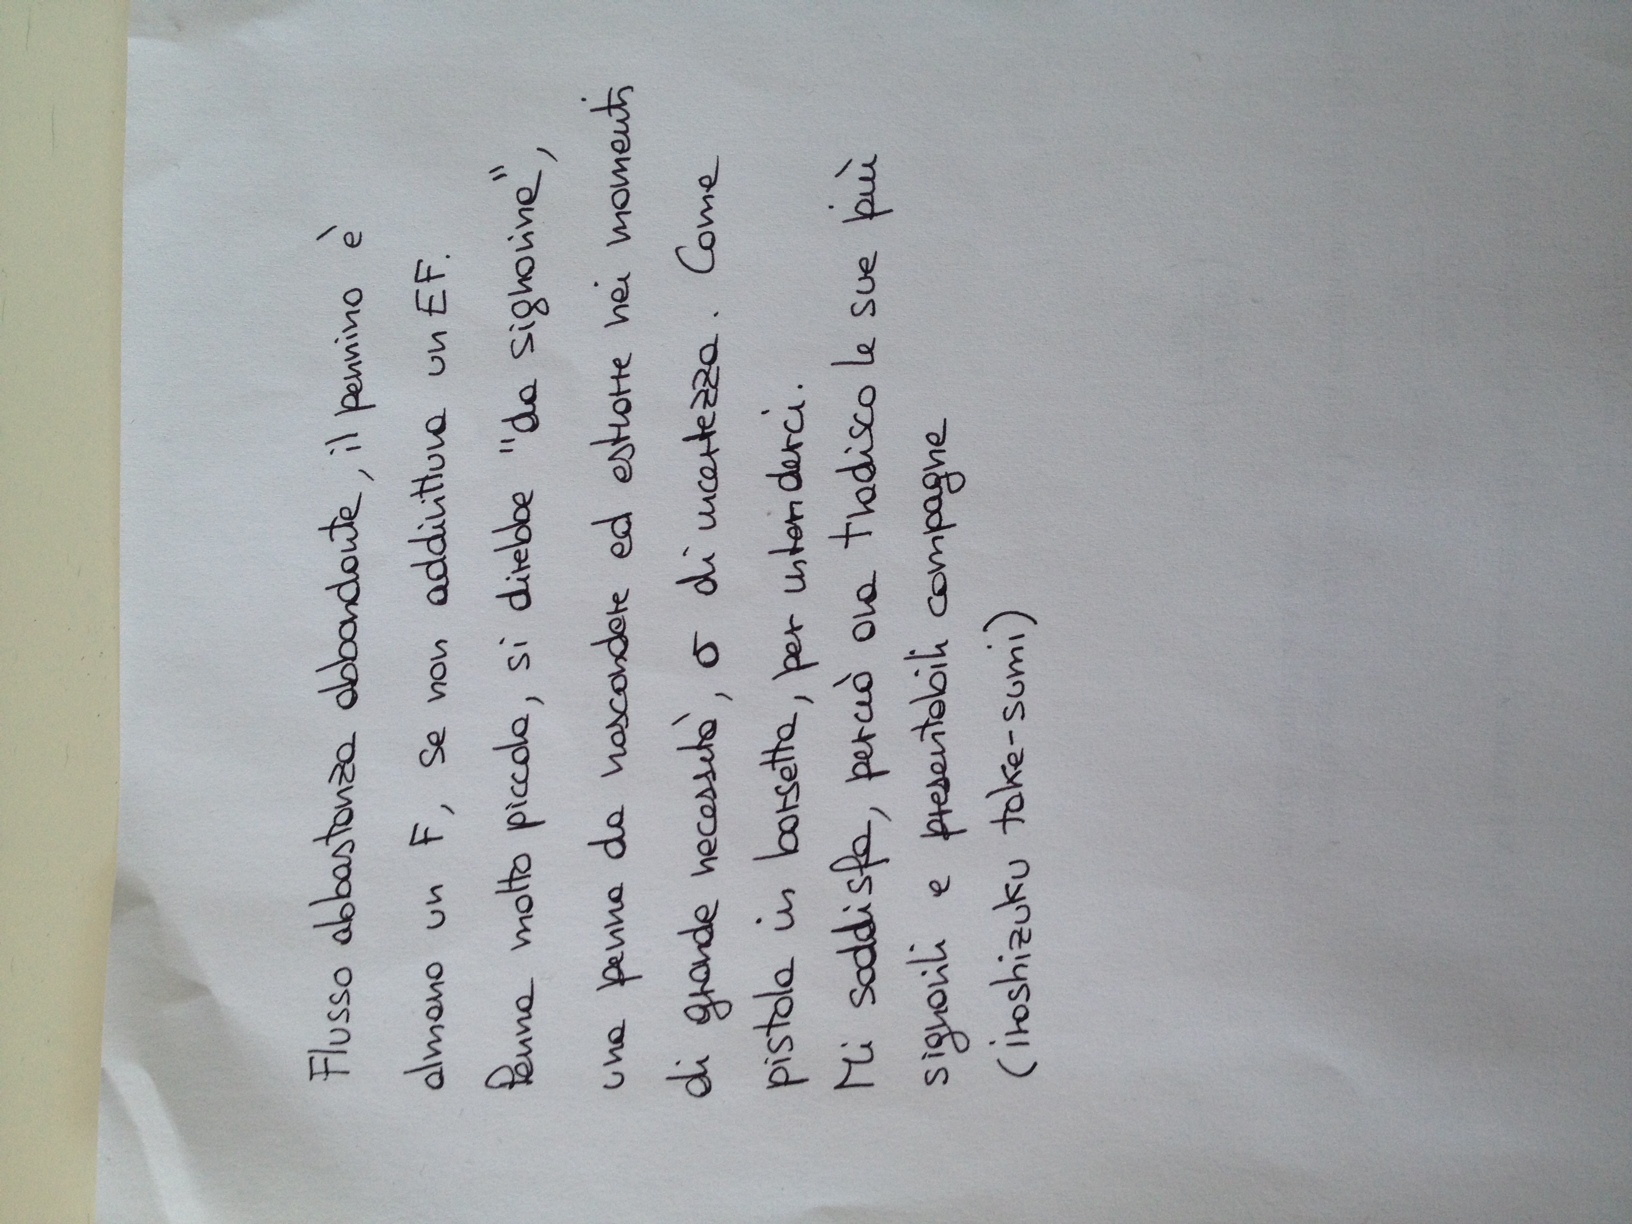 Flusso abbastanza abbondante, il pennino è
almeno un F, se non addirittura un EF.
Penna molto piccola, si direbbe "da signorina",
una penna da nascondere ed estrarre nei momenti
di grande necessità, o di incertezza. Come
pistola in borsetta, per intenderci.
Mi soddisfa, perciò ora tradisco le sue più
signorili e presentabili compagne
(iroshizuku take-sumi)